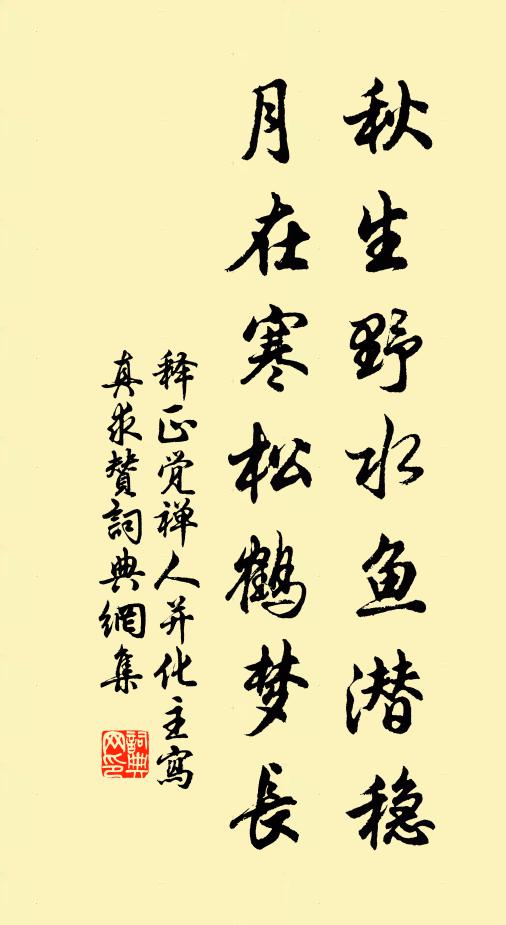 秋生野水鱼潜稳
月在寒松鹤梦长
释正觉禅人并化主寫
真求赞詞典網集
詞典網印